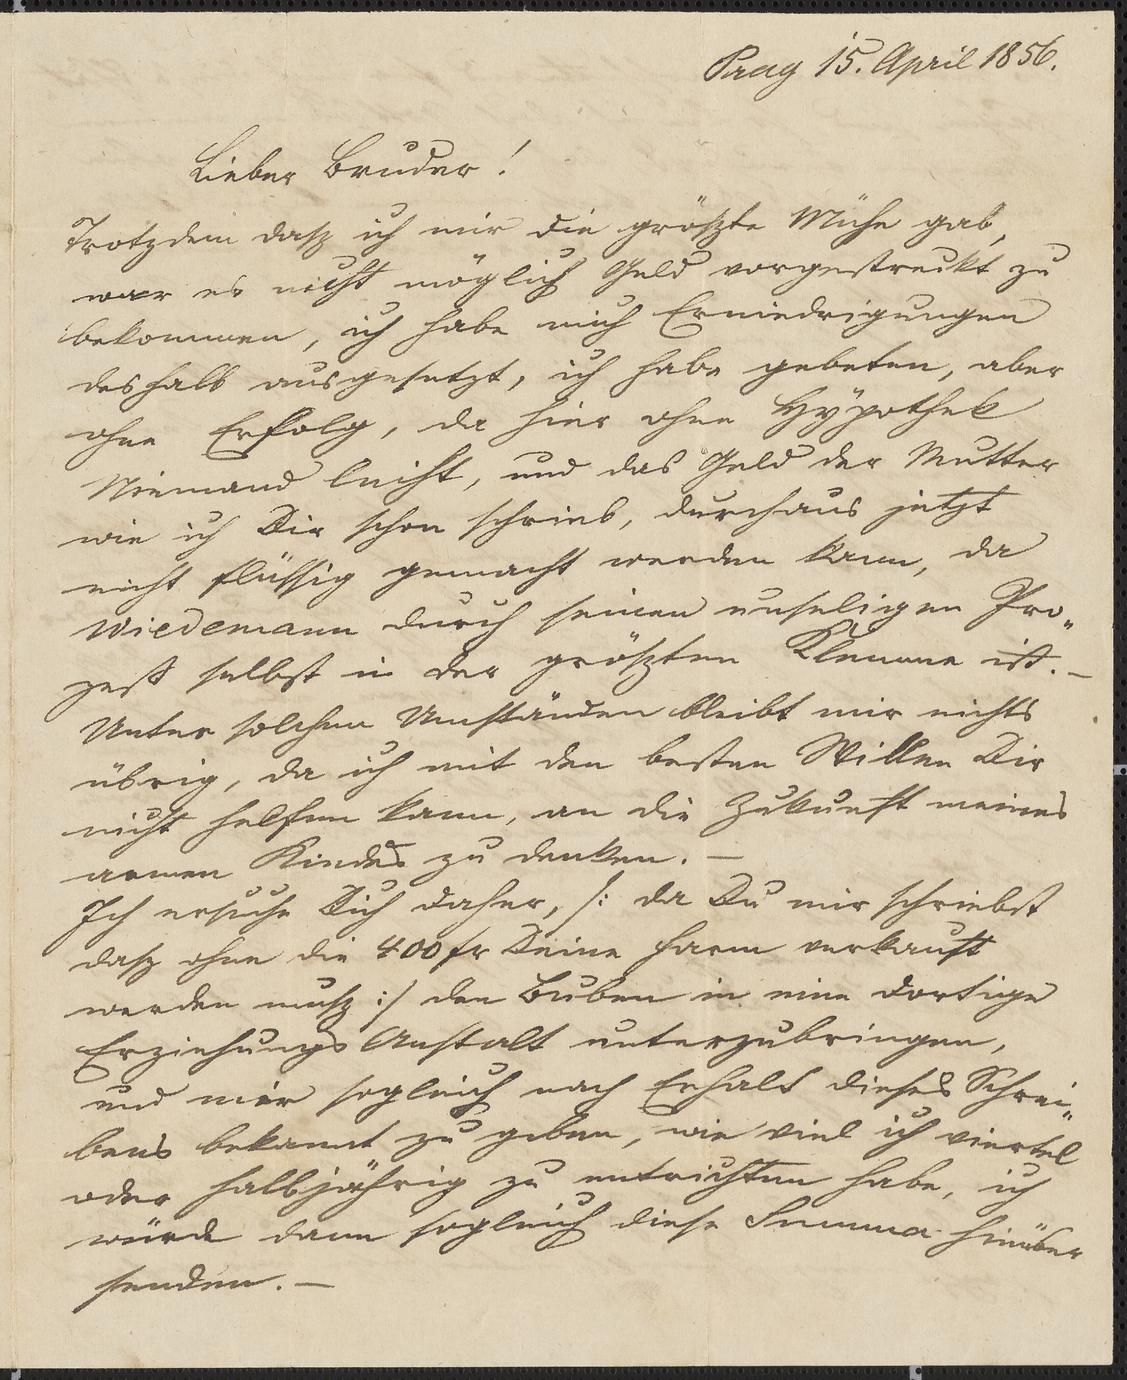 Prag 15. April 1856.
Lieber Bruder!
Trotzdem dasz ich mir die gröszte Mühe gab,
war es nicht möglich Geld vorgestreckt zu
bekommen, ich habe mich Erniedrigungen
deshalb ausgesetzt, ich habe gebeten, aber
ohne Erfolg, da hier ohne Hÿpothek
Niemand leiht, und das Geld der Mutter
wie ich Dir schon schrieb, durchaus jetzt
nicht flüssig gemacht werden kann, da
Wiedemann durch seinen unseligen Pro„
zeß selbst in der gröszten Klemme ist. –
Unter solchen Umständen bleibt mir nichts
übrig, da ich mit den besten Willen Dir
nicht helfen kann, an die Zukunft meines
armen Kindes zu denken. –
Ich ersuche Dich daher, /: da Du mir schriebst
dasz ohne die 400 fr Deine Farm verkauft
werden musz :/ den Buben in eine dortige
Erziehungs Anstalt unterzubringen,
und mir sogleich nach Erhalt dieses Schrei„
bens bekannt zu geben, wie viel ich viertel
oder halbjährig zu entrichten habe, ich
würde dann sogleich diese Summa hinüber
senden. –